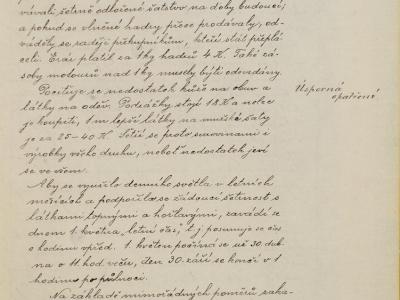 vávali šetrně odložené šatstvo na doby budoucí;
a pokud se vlněné hadry přece prodávaly, od-
váděly se raději překupníkům, kteří stát přeplá-
celi. Erár platil za 1 kg hadrů 4 K. Také zá-
soby molouru nad 1 kg musely býti odevzdány.
Pociťuje se nedostatek kůže na obuv a
látky na oděv. Podrážky stojí 18 K a nelze
je koupiti, 1 m lepší látky na mužské šaty
je za 25-40 K. Šetří se proto surovinami i
výrobky všeho druhu, neboť nedostatek jeví
se ve všem.
Úsporná
opatření
Aby se využilo denního světla v letních
měsících a podpořila se žádoucí šetrnost s
látkami topnými a hořlavými, zavádí se
dnem 1. května "letní čas", t. j. posunuje se čas
o hodinu vpřed. 1. květen počíná se už 30. dub-
na o 11. hod. večer, den 30. září se končí v 1
hodinu po půlnoci.
Na základě mimořádných poměrů zaka-